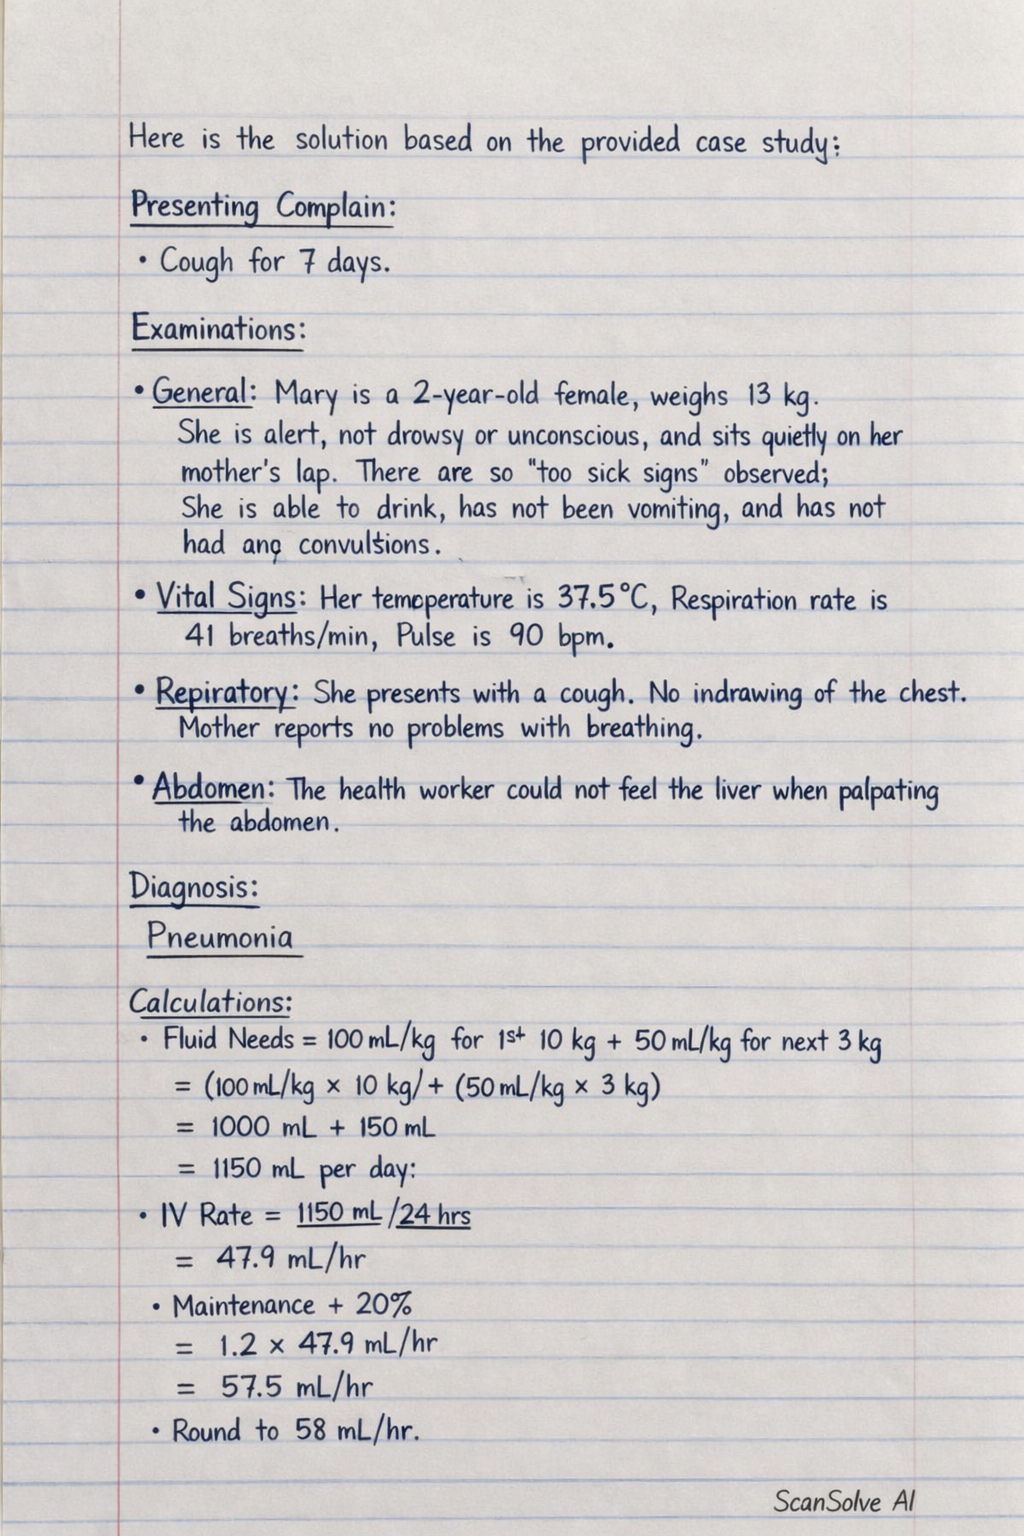 Here is the solution based on the provided case study:
Presenting Complain:
• Cough for 7 days.
Examinations:
• General: Mary is a 2-year-old female, weighs 13 kg.
She is alert, not drowsy or unconscious, and sits quietly on her
mother's lap. There are so "too sick signs" observed;
She is able to drink, has not been vomiting, and has not
had ang convultions.
• Vital Signs: Her temoperature is 37.5°C, Respiration rate is
41 breaths/min, Pulse is 90 bpm.
• Repiratory: She presents with a cough. No indrawing of the chest.
Mother reports no problems with breathing.
• Abdomen: The health worker could not feel the liver when palpating
the abdomen.
Diagnosis:
Pneumonia
Calculations:
• Fluid Needs = 100 mL/kg for 1st 10 kg + 50 mL/kg for next 3 kg
= (100 mL/kg × 10 kg/ + (50 mL/kg × 3 kg)
= 1000 mL + 150 mL
= 1150 mL per day:
• IV Rate = 1150 mL / 24 hrs
= 47.9 mL/hr
• Maintenance + 20%
= 1.2 × 47.9 mL/hr
= 57.5 mL/hr
• Round to 58 mL/hr.
ScanSolve AI